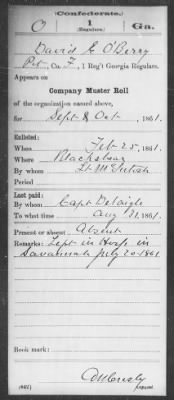 Confederate.
O 1 Ga.
(Regulars.)
David E O'Berry
Pvt, Co. F, 1 Reg't Georgia Regulars.
Appears on
Company Muster Roll
of the organization named above,
for Sept & Oct, 1861.
Enlisted:
When Feb 25, 1861.
Where Blackshear
By whom Lt McIntosh
Period
Last paid:
By whom Capt
To what time Aug 31, 1861.
Present or absent Absent
Remarks: Left in Hosp in
Savannah July 20 1861
Book mark:
(642) Copyist.